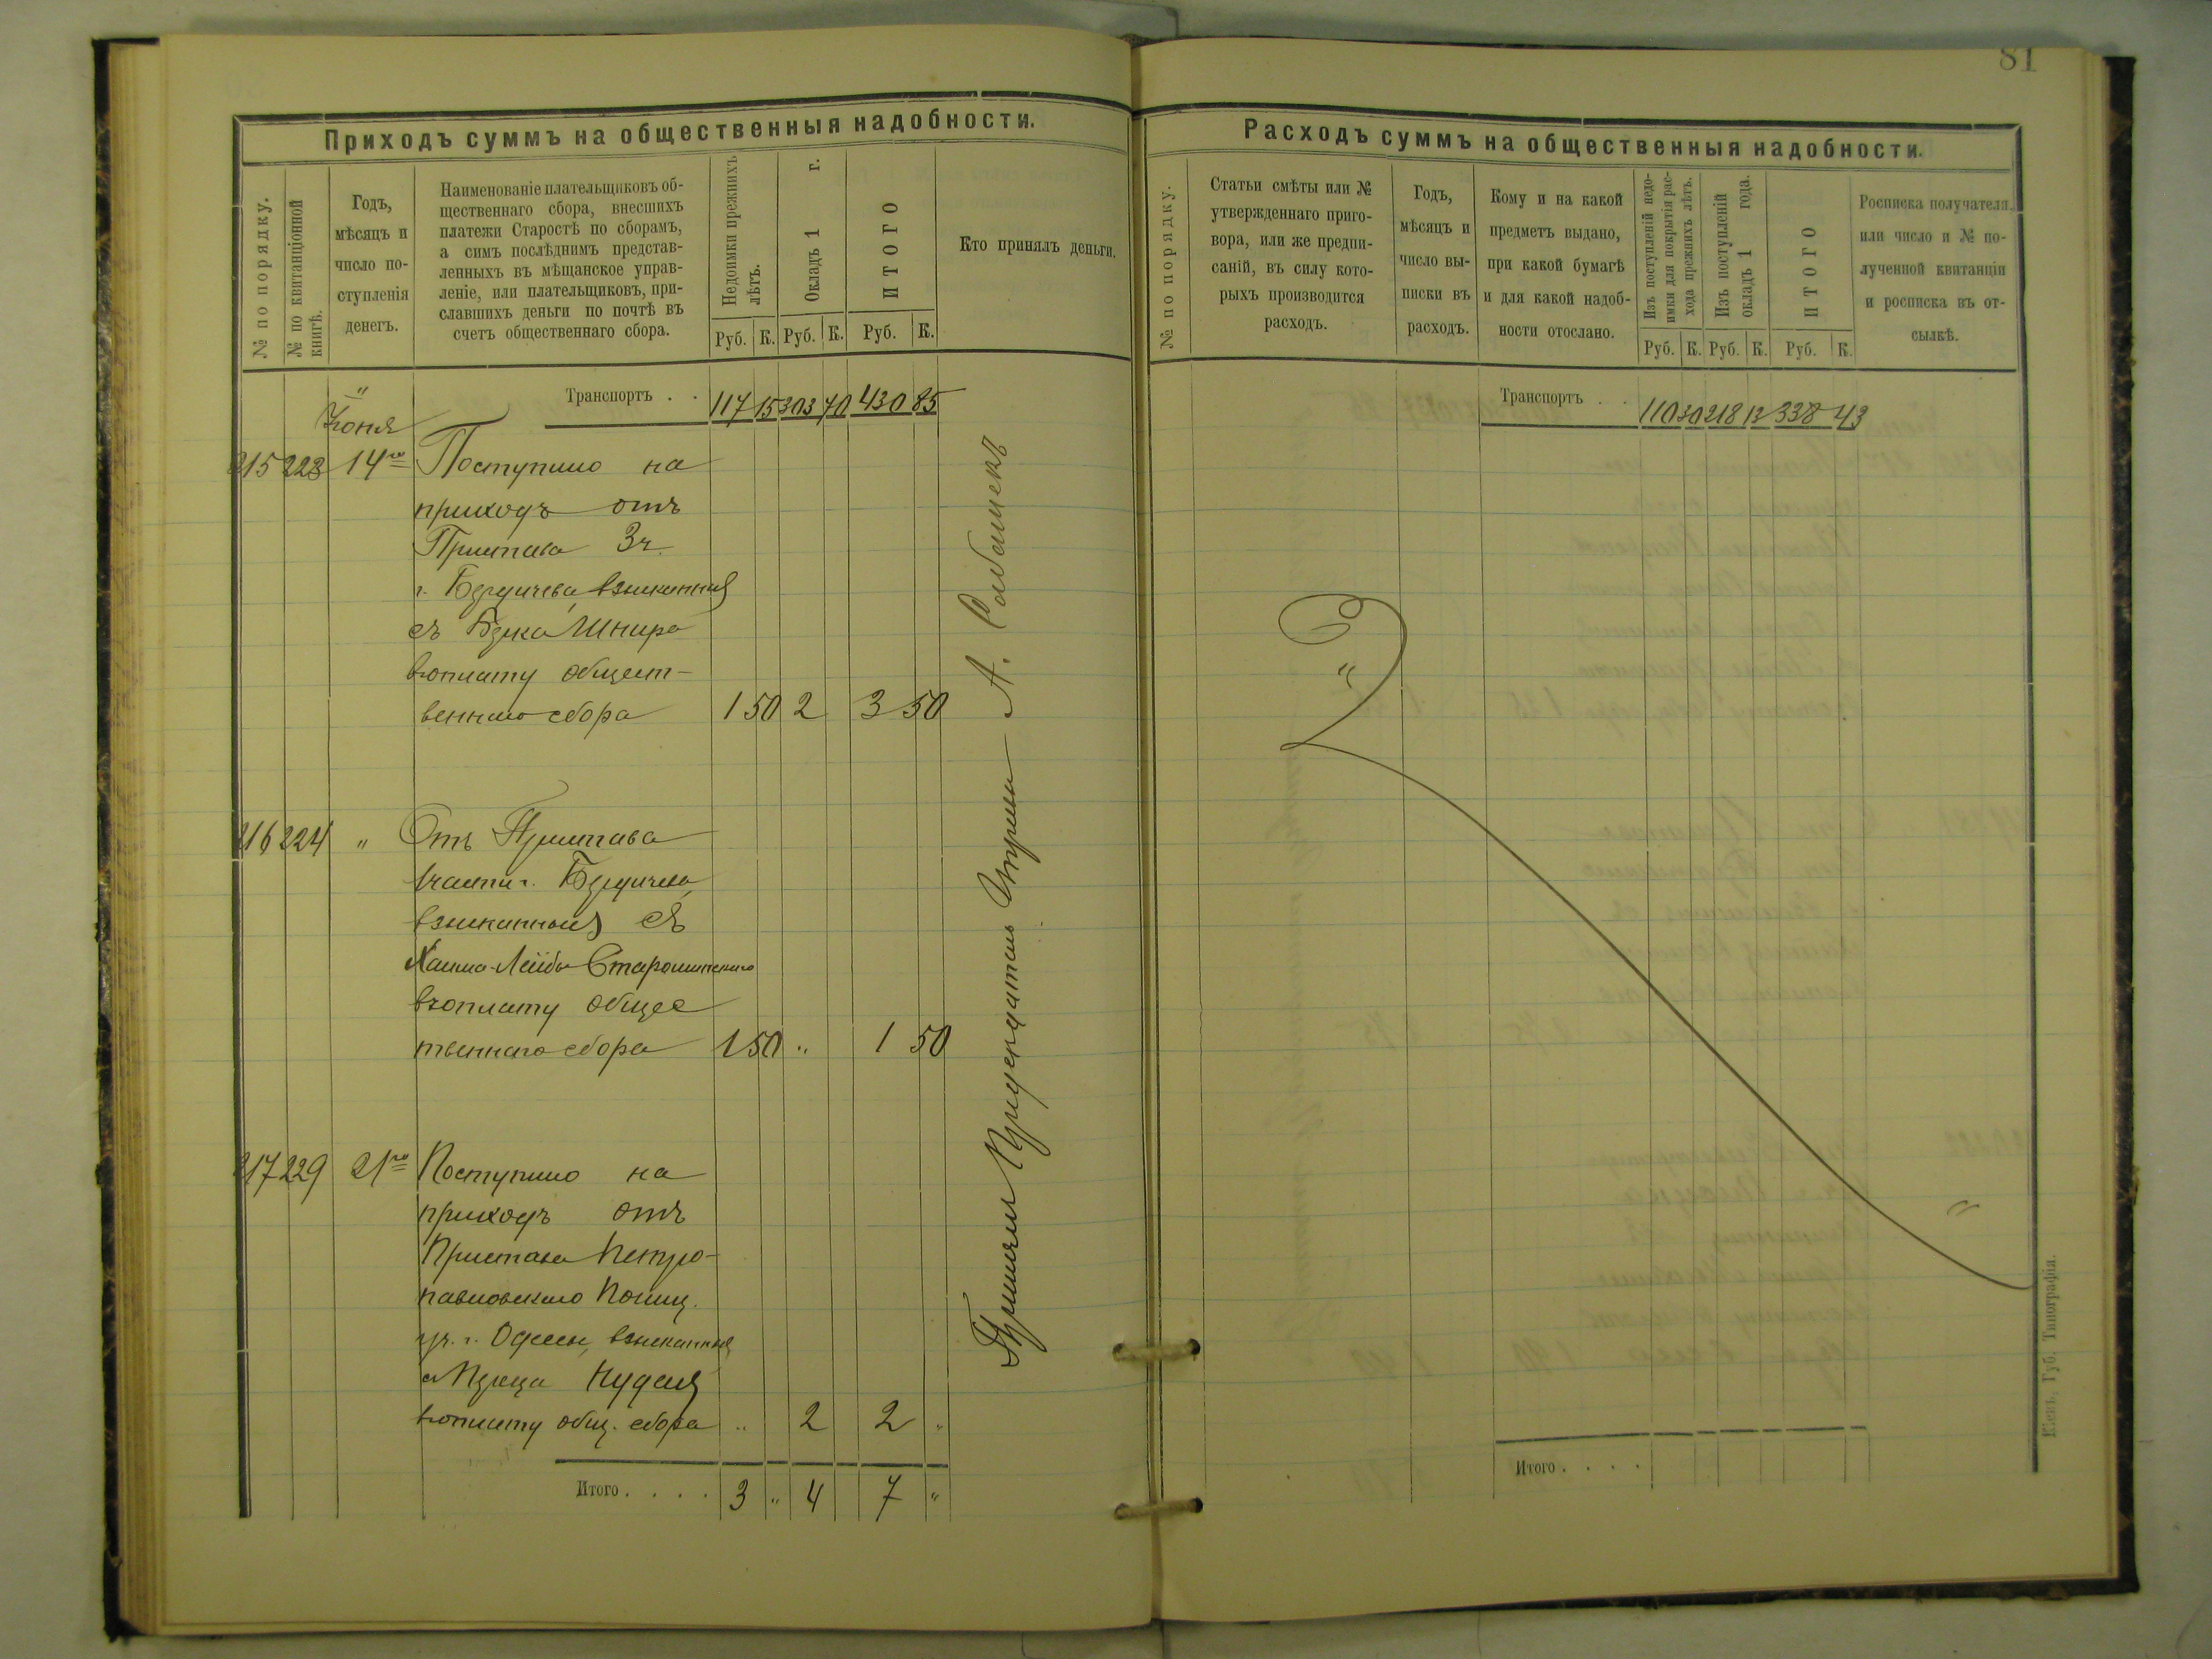 81
Приходъ суммъ на общественныя надобности.
№ по порядку.
№ по квитанціонной книгѣ.
Годъ,
мѣсяцъ и
число по-
ступленія
денегъ.
Наименованіе плательщиковъ об-
щественнаго сбора, внесшихъ
платежи Старостѣ по сборамъ,
а симъ послѣднимъ представ-
ленныхъ въ мѣщанское управ-
леніе, или плательщиковъ, при-
славшихъ деньги по почтѣ въ
счетъ общественнаго сбора.
Недоимки прежнихъ лѣтъ.
Окладъ 1 г.
ИТОГО
Руб. К. Руб. К. Руб. К.
Кто принялъ деньги.
Транспортъ . . 117 15 303 70 430 85
Іюня
215 223 14го Поступило на
приходъ отъ
Пристава 3 ч.
г. Бердичева взысканныя
съ Шнира
въ оплату общест-
веннаго сбора 1 50 2 3 50
216 224 " Отъ Пристава
1 части г. Бердичева
взысканныя съ
Хаима-Лейбы
въ оплату общес
твеннаго сбора 1 50 " 1 50
217 229 21го Поступило на
приходъ отъ
Пристава Петро-
павловскаго Полиц.
уч. г. Одессы, взысканныя
съ
въ оплату общ. сбора " 2 2 "
Итого . . . . 3 " 4 7 "
А.
Расходъ суммъ на общественныя надобности.
№ по порядку.
Статьи смѣты или №
утвержденнаго приго-
вора, или же предпи-
саній, въ силу кото-
рыхъ производится
расходъ.
Годъ,
мѣсяцъ и
число вы-
писки въ
расходъ.
Кому и на какой
предметъ выдано,
при какой бумагѣ
и для какой надоб-
ности отослано.
Изъ поступленій недо-
имки для покрытія рас-
хода прежнихъ лѣтъ.
Изъ поступленій
окладъ 1 года.
ИТОГО
Руб. К. Руб. К. Руб. К.
Росписка получателя,
или число и № по-
лученной квитанціи
и росписка въ от-
сылкѣ.
Транспортъ . . 110 30 218 13 338 43
"
"
Итого . . . .
Кіевъ. Губ. Типографія.